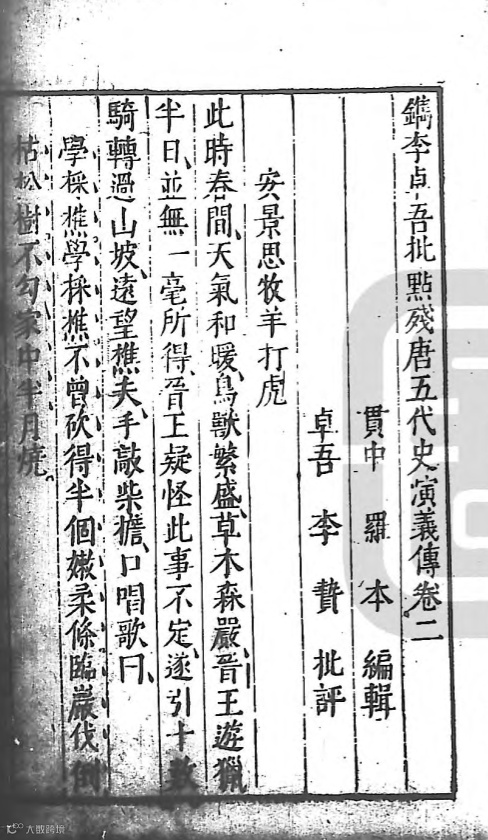 鐫李卓吾批點殘唐五代史演義傳卷二
貫中 羅本 編輯
卓吾 李贄 批評
安景思牧羊打虎
此時春間、天氣和暖、鳥獸繁盛、草木森嚴、晉王遊獵
半日、並無一毫所得、晉王疑怪此事不定、遂引十數
騎轉過山坡、遠望樵夫、手敲柴擔、口唱歌曰、
學採樵學採樵不曾砍得半個嫩柔條臨巖伐倒
枯松樹不勾家中半月燒。
大敗跨境